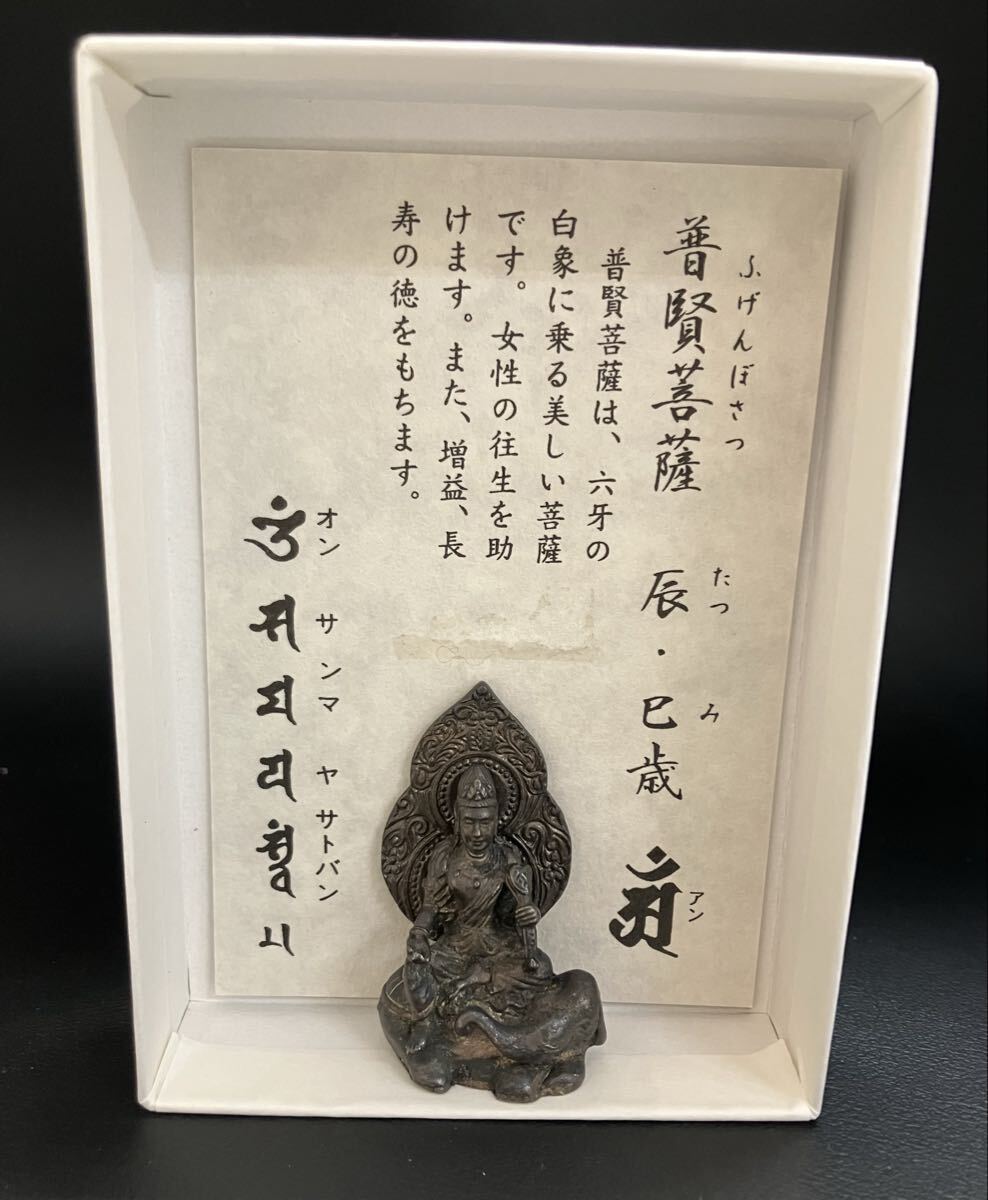 ふげんぼさつ
普賢菩薩
たつ
み
辰・巳歳
アン
普賢菩薩は、六牙の
白象に乗る美しい菩薩
です。女性の往生を助
けます。また、増益、長
寿の徳をもちます。
オン サンマ ヤ サトバン